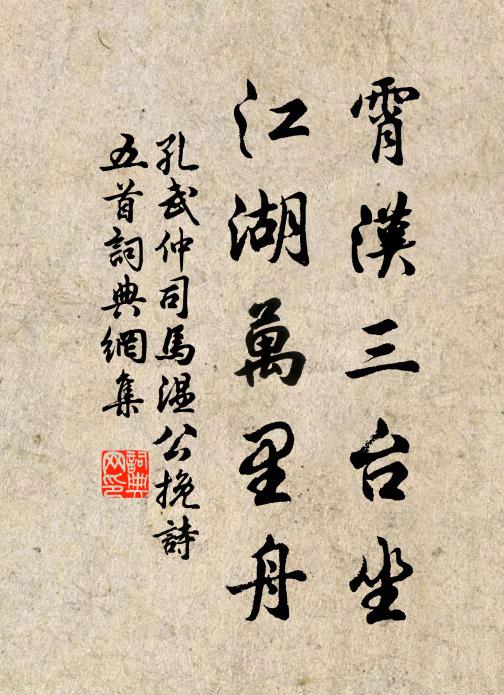 霄漢三台坐
江湖萬里舟
孔武仲司馬溫公挽詩
五首詞典網集
詞典
网印